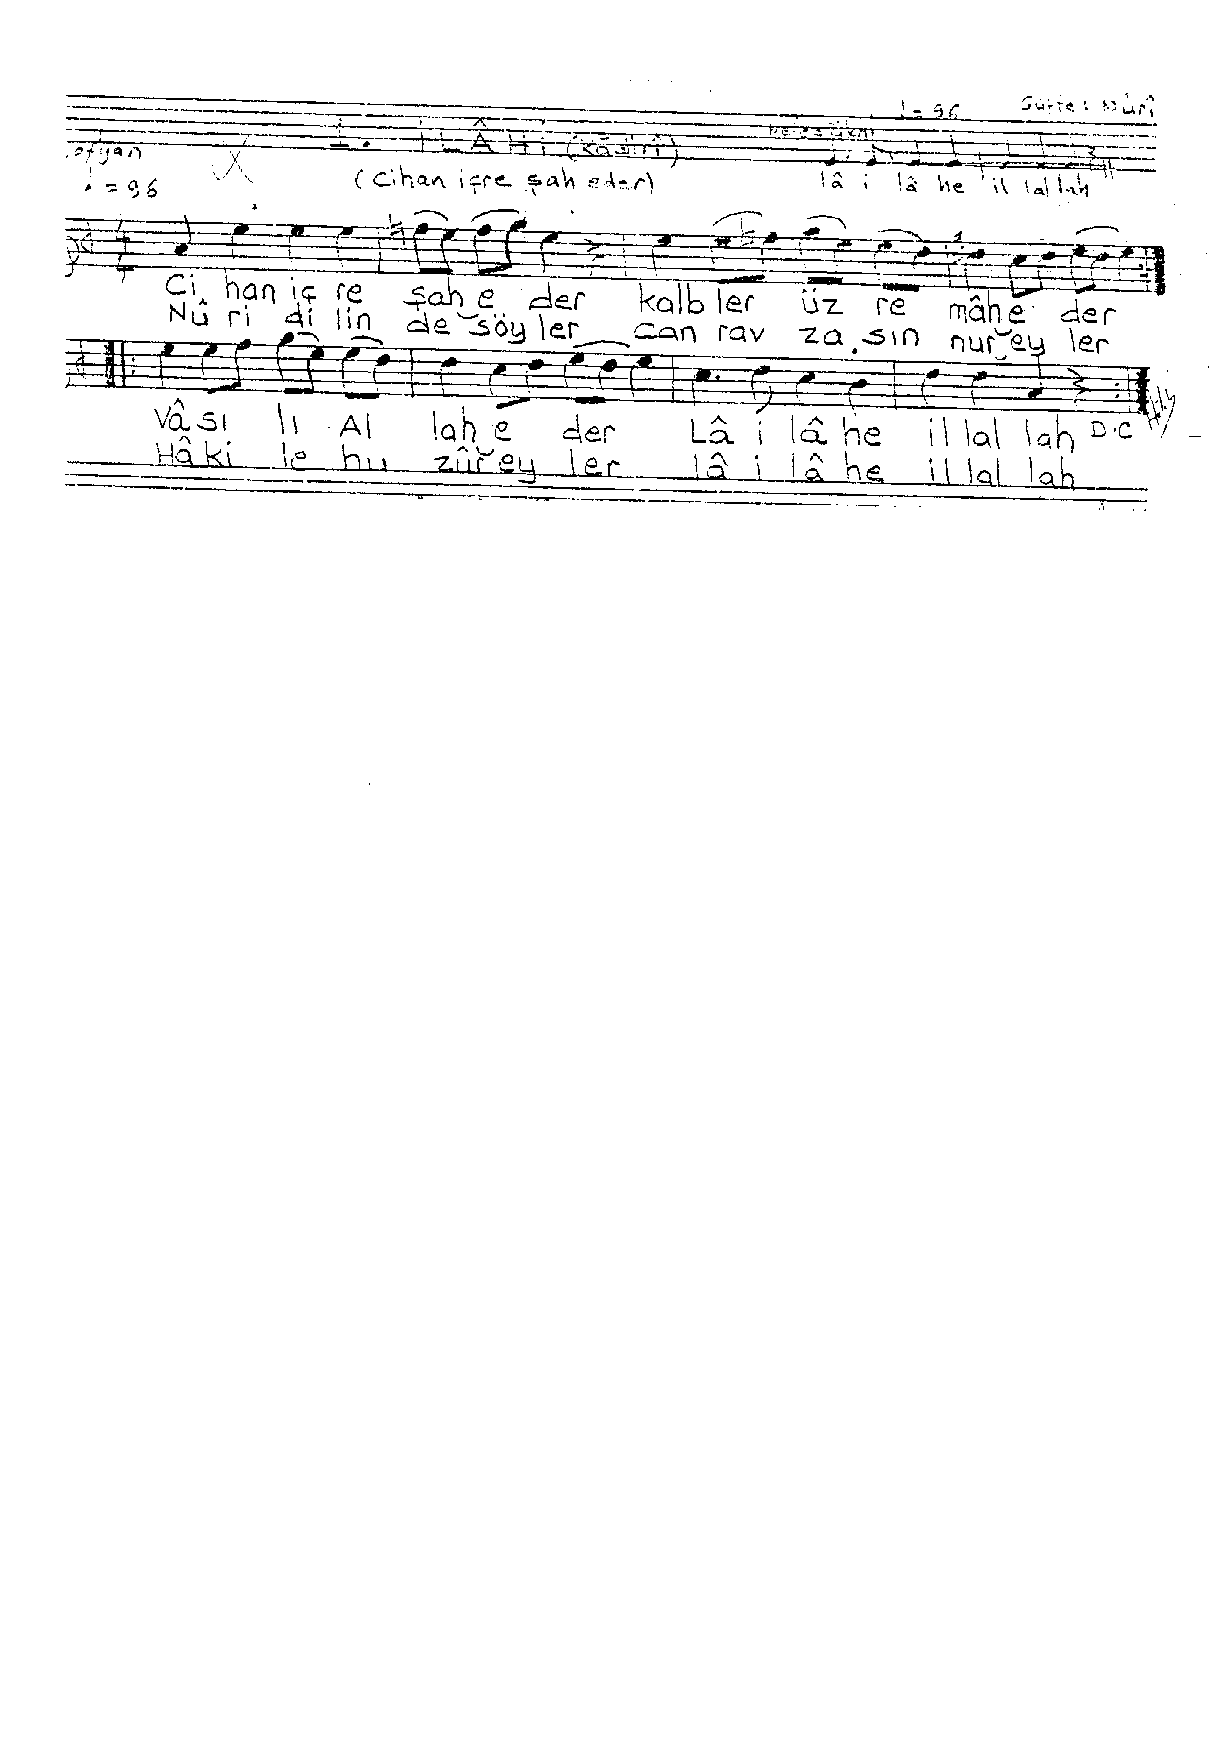 ♩ = 96 Güfte: Nûrî
1. İLÂHİ (Kâdirî)
Sofyan
♩ = 96
(Cihan içre şah eder)
lâ i lâ he il lal lah
Ci han iç re şah e der kalb ler üz re mâh e der
Nû ri di lin de söy ler can rav za sın nur ey ler
Vâ sı lı Al lah e der Lâ i lâ he il lal lah D.C
Hâ ki le hu zûr ey ler lâ i lâ he il lal lah